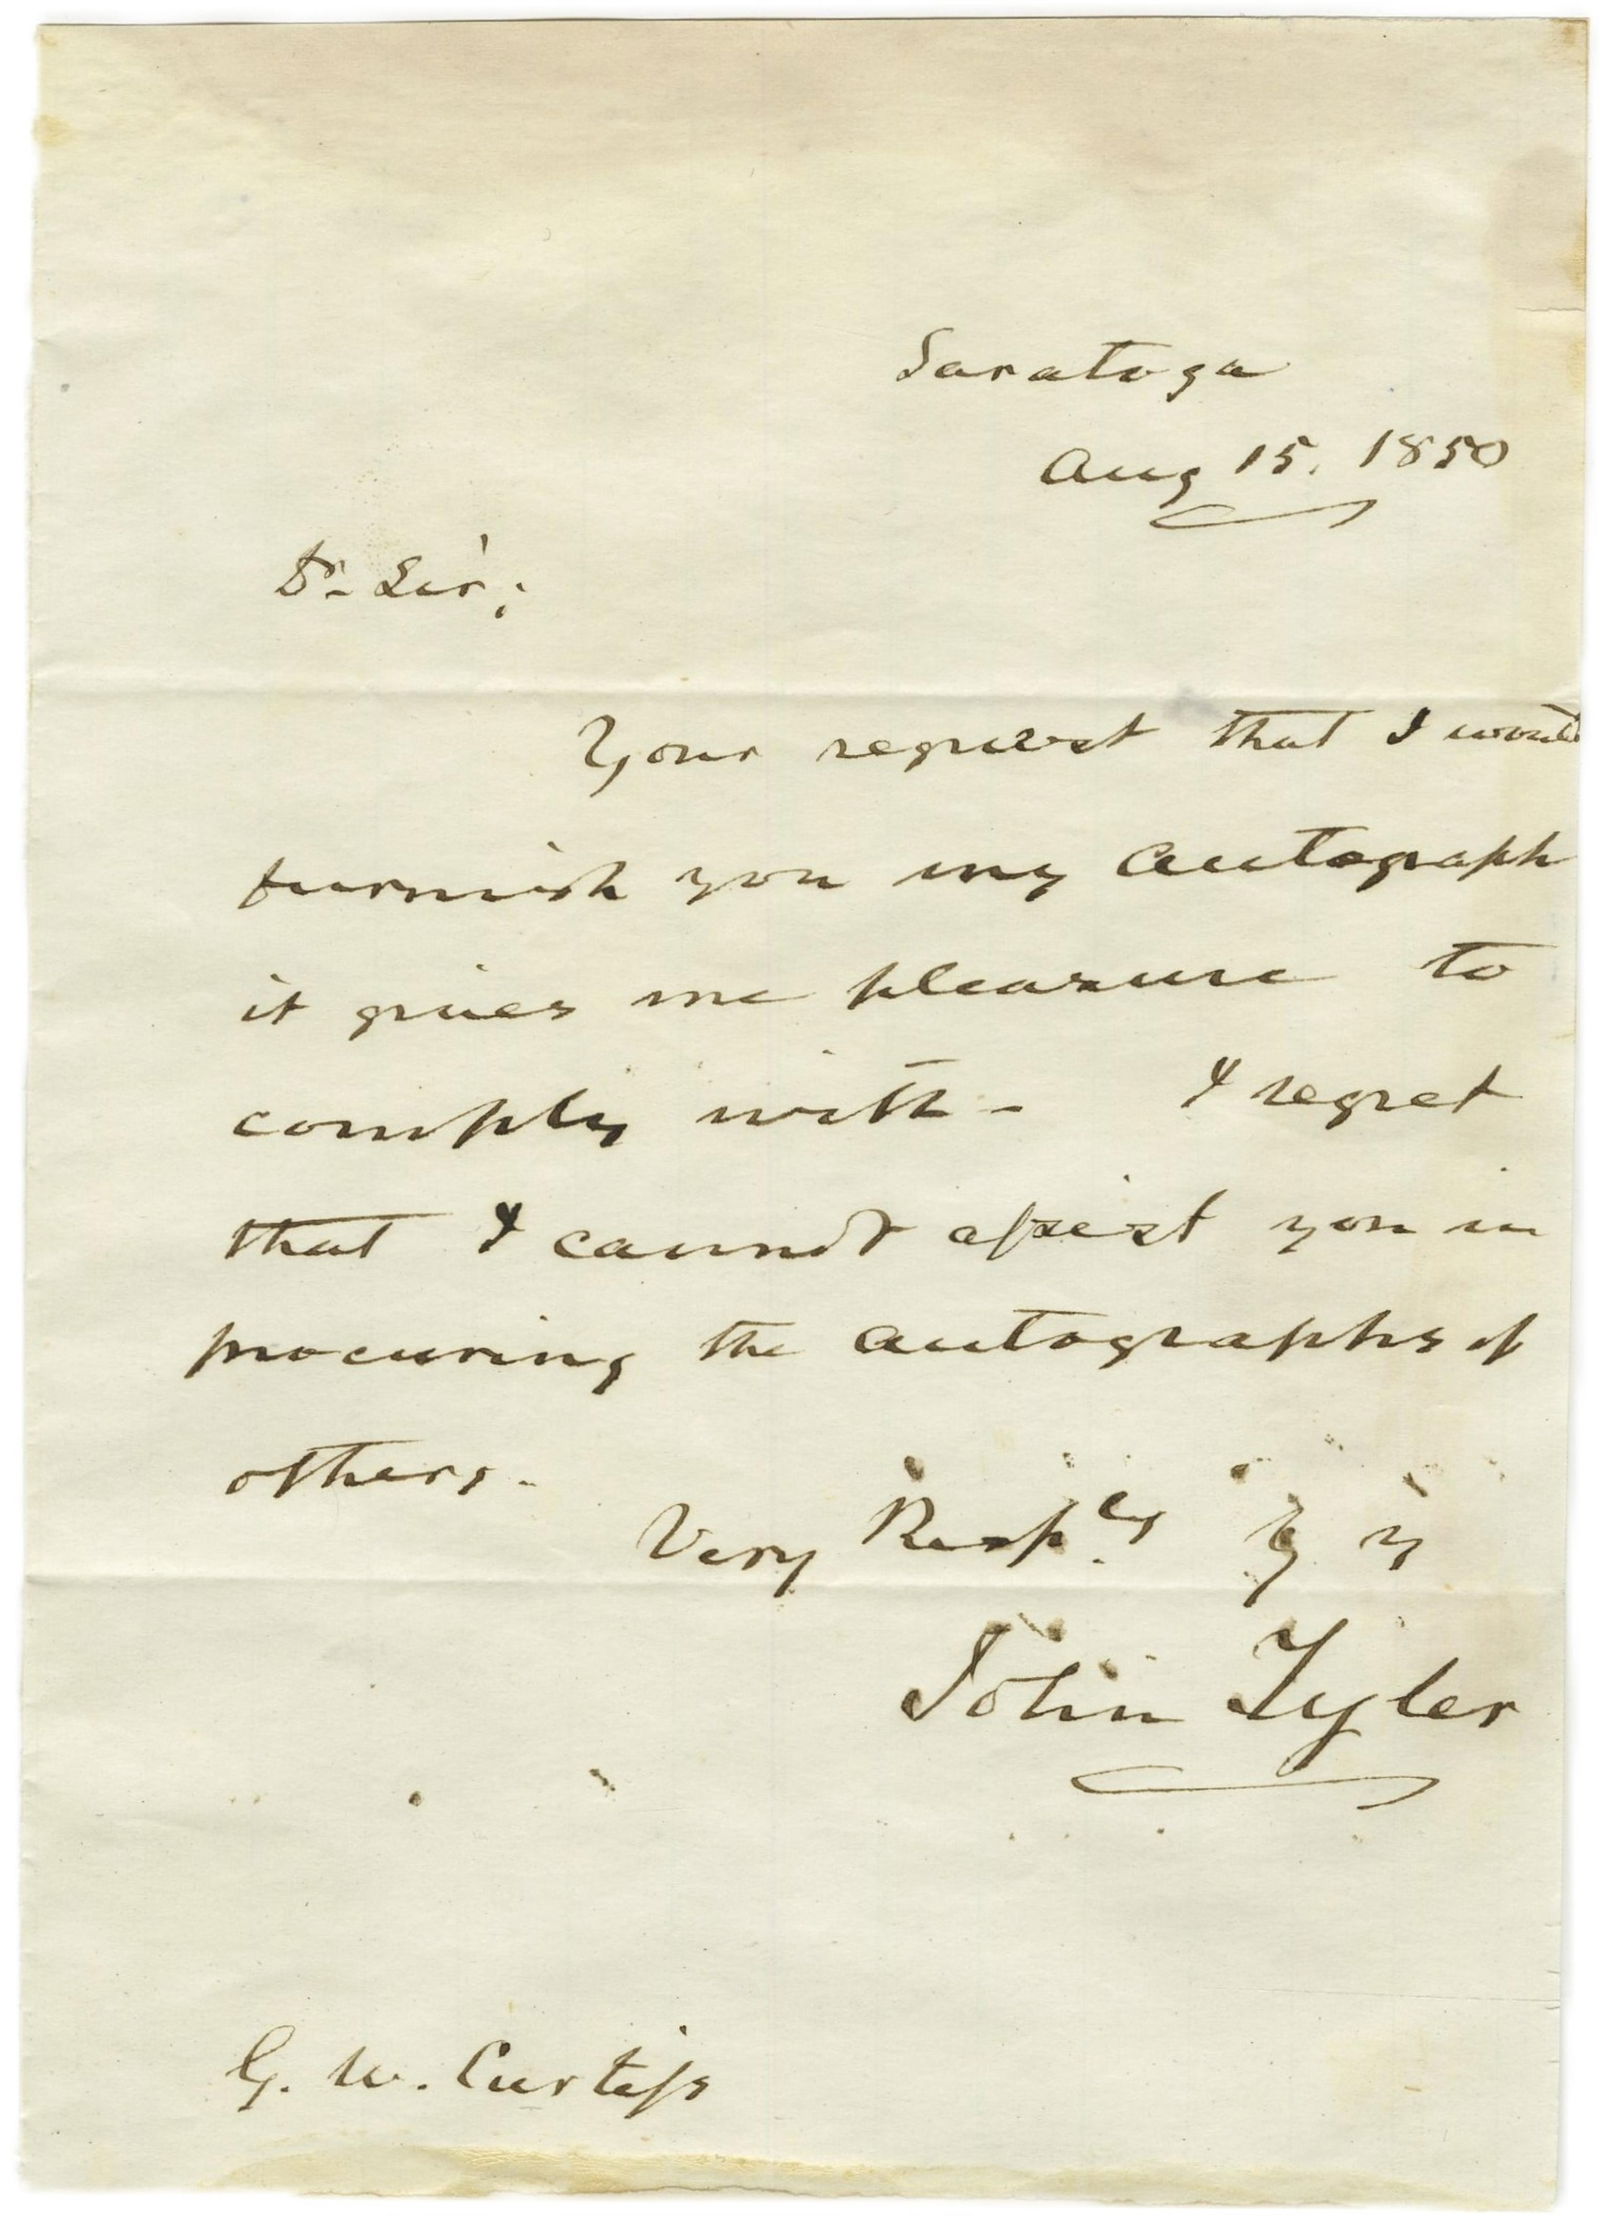 Saratoga
Aug 15. 1850
Dr Sir;
Your request that I would
furnish you my autograph
it gives me pleasure to
comply with - I regret
that I cannot assist you in
procuring the autographs of
others.
Very Resply Yr
John Tyler
G. W. Curtiss